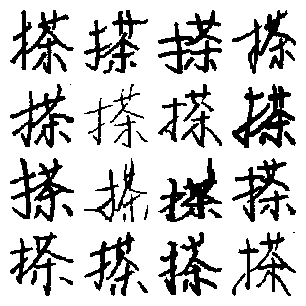 搽搽搽搽
搽搽搽搽
搽搽搽搽
搽搽搽搽